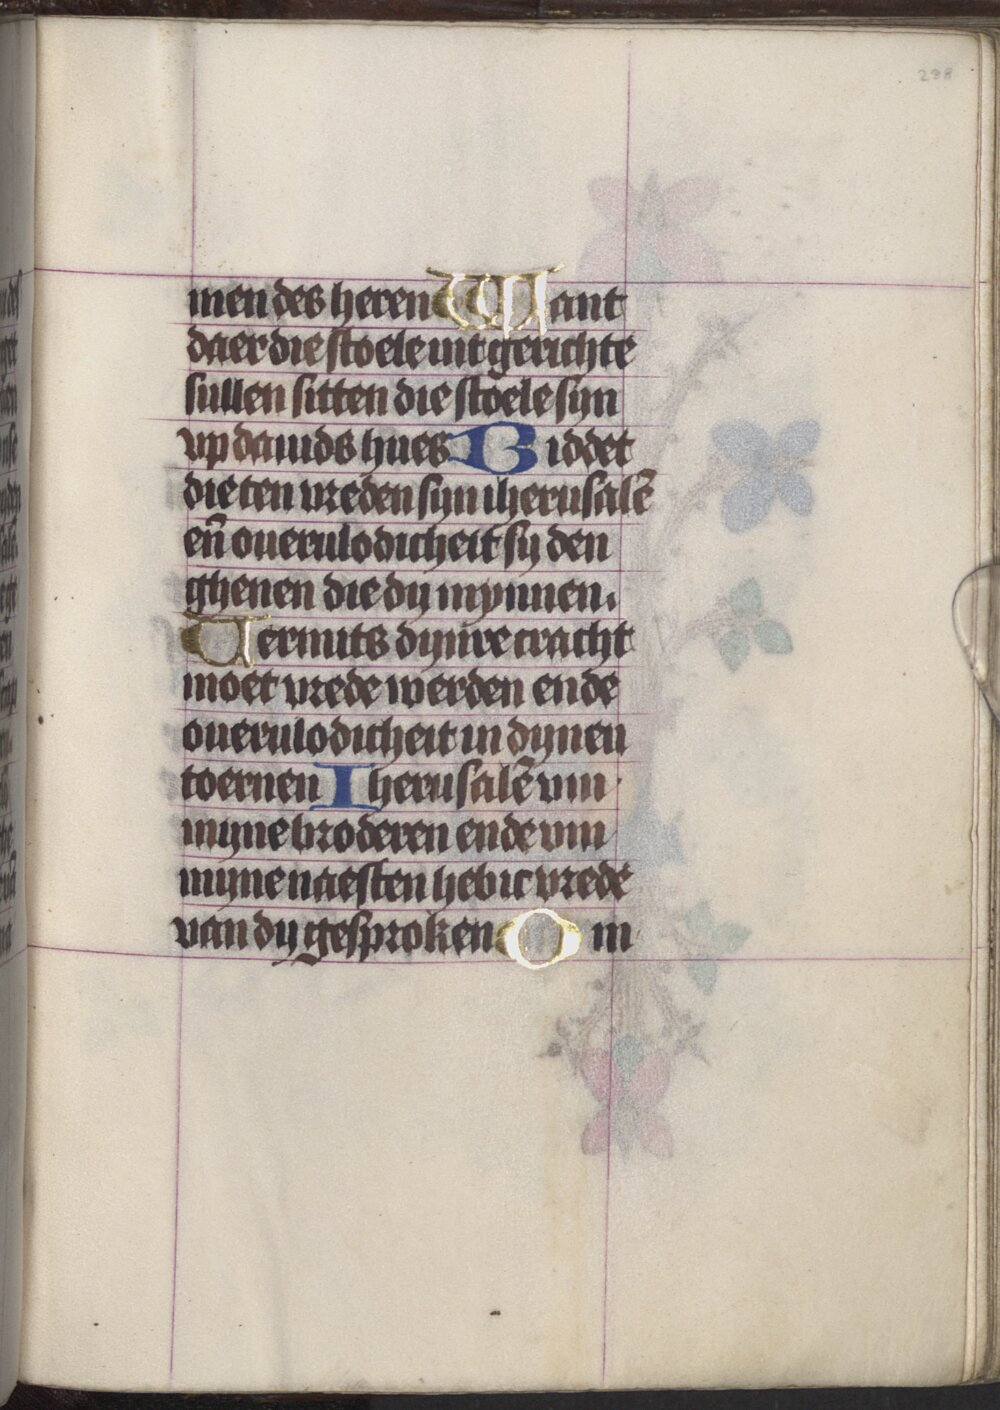 298
men des heren Want
daer die stoele int gerichte
sullen sitten die stoele syn
vp dauids hues Biddet
die ten vreden syn iherusalē
en̄ ouerulodicheit sy den
ghenen die dy mynnen.
Vermits dynre cracht
moet vrede werden ende
ouerulodicheit in dynen
toernen Iherusalē vm
myne broderen ende vm
myne naesten heb ic vrede
van dy gesproken Om